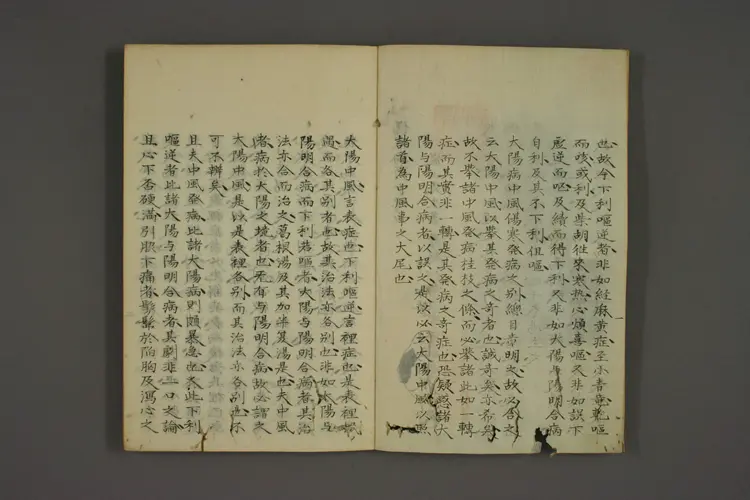 也故今下利嘔逆者非如経麻黄症至小青竜乾嘔
而咳或利及柴胡往来寒熱心煩喜嘔又非如誤下
嘔逆而呕及続而得下利又非如太陽与陽明合病
自利及其不下利但嘔
太陽病中風傷寒発病之別總目章明之故必含之
云太陽中風以挙其発病之奇者也誠奇矣亦希矣
故不挙諸中風発病桂枝之條而必挙諸此如一轉
症而其實非一轉是其発病之奇症也恐疑惑諸太
陽与陽明合病者以誤之 以必云太陽中風以照
諸首為中風事之大尾也
太陽中風言表症也下利嘔逆言裡症也是表裡
偶而各其別者也故其治法亦各別也非如太陽与
陽明合病而下利若嘔者太陽与陽明合病者其治
法亦合而治之葛根湯及其加半夏湯是也夫中風
者病於太陽之 者也死有与陽明合病故必謂之
太陽中風是以是表裡各別而其治法亦各別也不
可不辨矣
且夫中風発病比諸太陽病則頗暴急也矣此下利
嘔逆者比諸太陽与陽明合病者其劇非一口之論
且心下痞硬満別服下痛者髣髴於陥胸及瀉心之